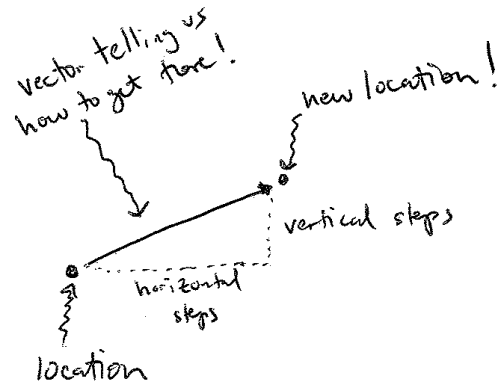 vector telling us
how to get there!
new location!
vertical steps
horizontal
steps
location